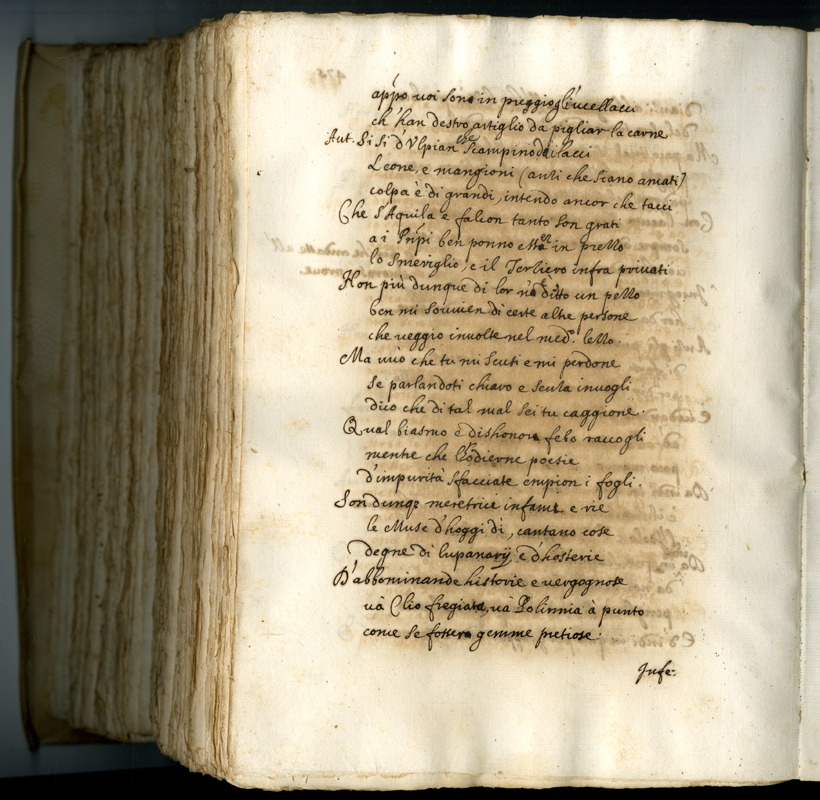 appo voi sono in preggio gl'ucellacci
ch'han destro artiglio da pigliar la carne
Aut. Si si d'Ulpian che scampino dai lacci
Leone, e mangioni (anti che siano amati)
colpa è di grandi, intendo ancor che tacci
Che s'Aquila e falcon tanto son grati
a i Pñpi ben ponno esser in prezzo
lo smeriglio, e il Terliero infra privati
Non più dunque di lor n'è ditto un pezzo
ben mi souvien di certe altre persone
che veggio involte nel med.º lezzo.
Ma vuò che tu mi scuti e mi perdone
se parlandoti chiaro e senza invogli
dico che di tal mal sei tu caggione.
Qual biasmo e dishonor febo raccogli
mentre che l'hodierne poesie
d'impurità sfacciate empion i fogli.
Son dunqz meretrici infami e rie
le Muse d'hoggi dì, cantano cose
degne di lupanarij, e d'hosterie
D'abbominande historie e vergognose
và Clio fregiata, và Polinnia à punto
come se fossero gemme pretiose.
Infe: